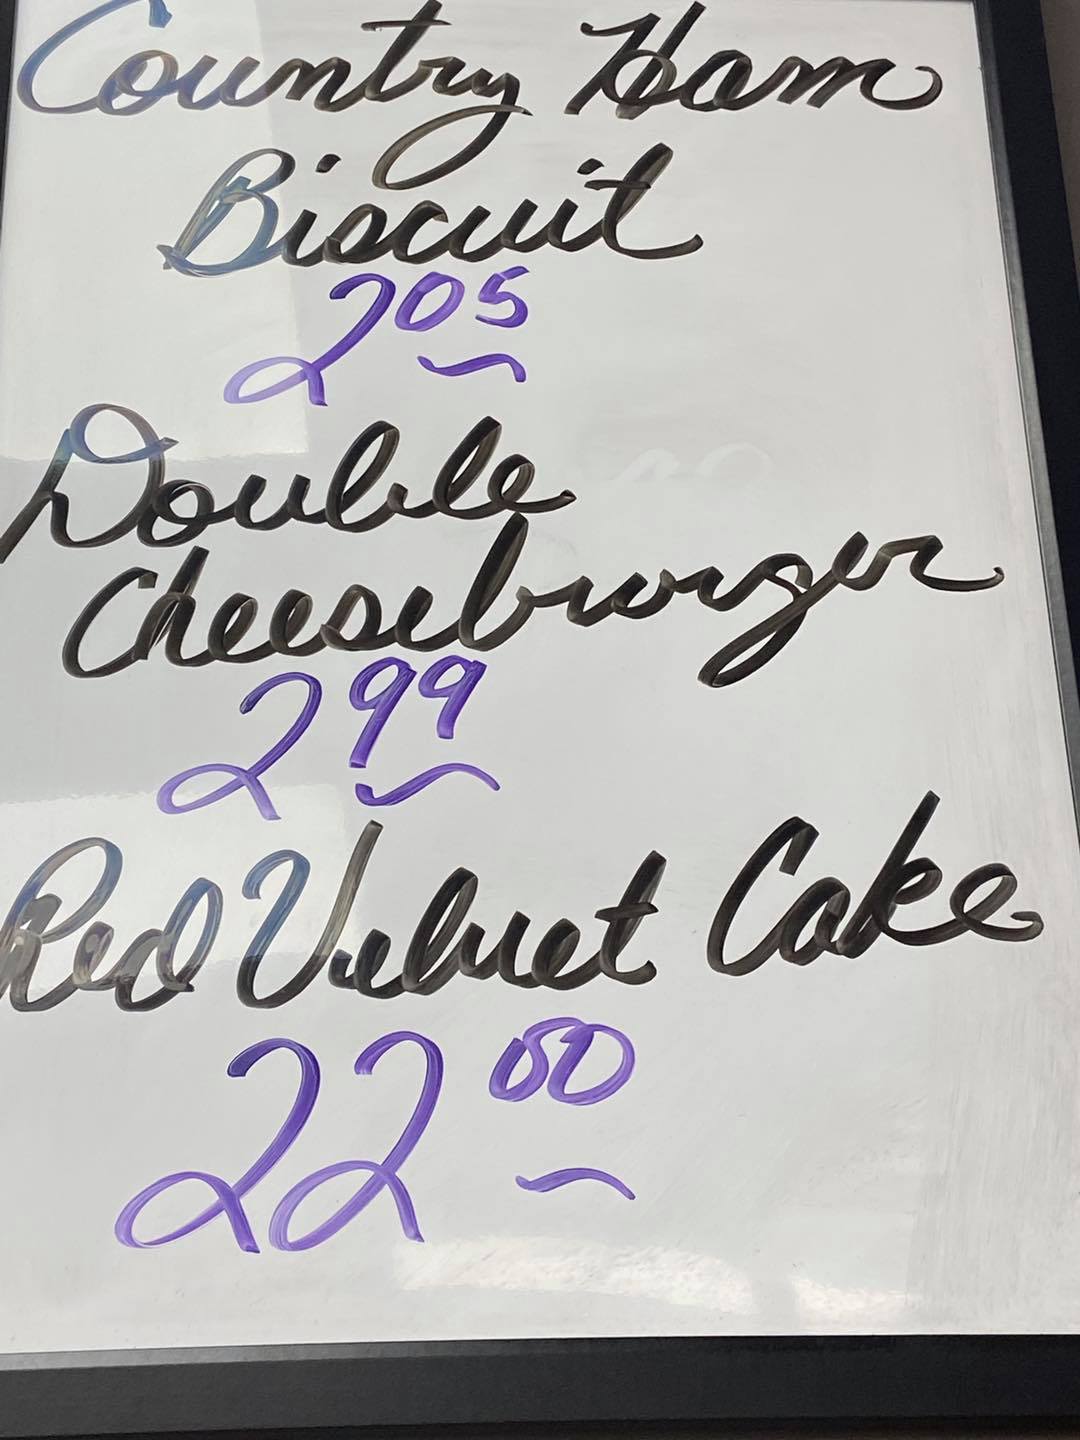 Country Ham
Biscuit
2 05
Double
Cheeseburger
2 99
Red Velvet Cake
22 00